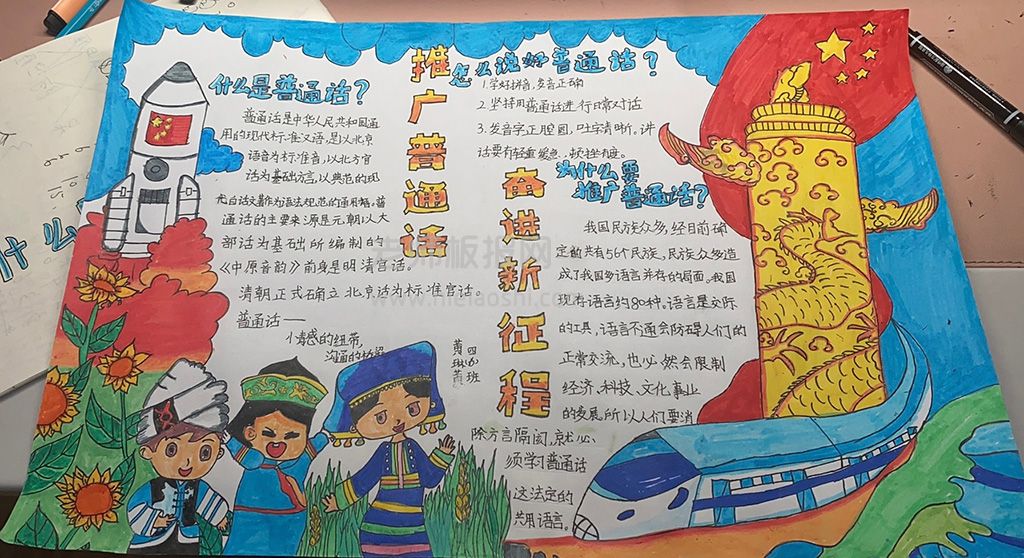 推广普通话
奋进新征程
什么是普通话?
普通话是中华人民共和国通
用的现代标准汉语,是以北京
语音为标准音,以北方官
话为基础方言,以典范的现
代白话文著作为语法规范的通用语,普
通话的主要来源是元朝以大
部话为基础所编制的
《中原音韵》前身是明清宫话。
清朝正式确立北京话为标准宫话。
普通话——
情感的纽带,
沟通的桥梁
黄琳茜
四(6)班
怎么说好普通话?
1.学好拼音,发音正确
2.坚持用普通话进行日常对话
3.发音字正腔圆,吐字清晰,讲
话要有轻重缓急、顿挫有连。
为什么要
推广普通话?
我国民族众多,经目前确
定的共有56个民族,民族众多造
成了我国多语言并存的局面。我国
现有语言约80种,语言是交际
的工具,语言不通会防碍人们的
正常交流,也必然会限制
经济、科技、文化事业
的发展,所以人们要消
除方言隔阂,就必
须学习普通话
这法定的
共用语言。
老师板报网
www.meilaoshi.com
什么